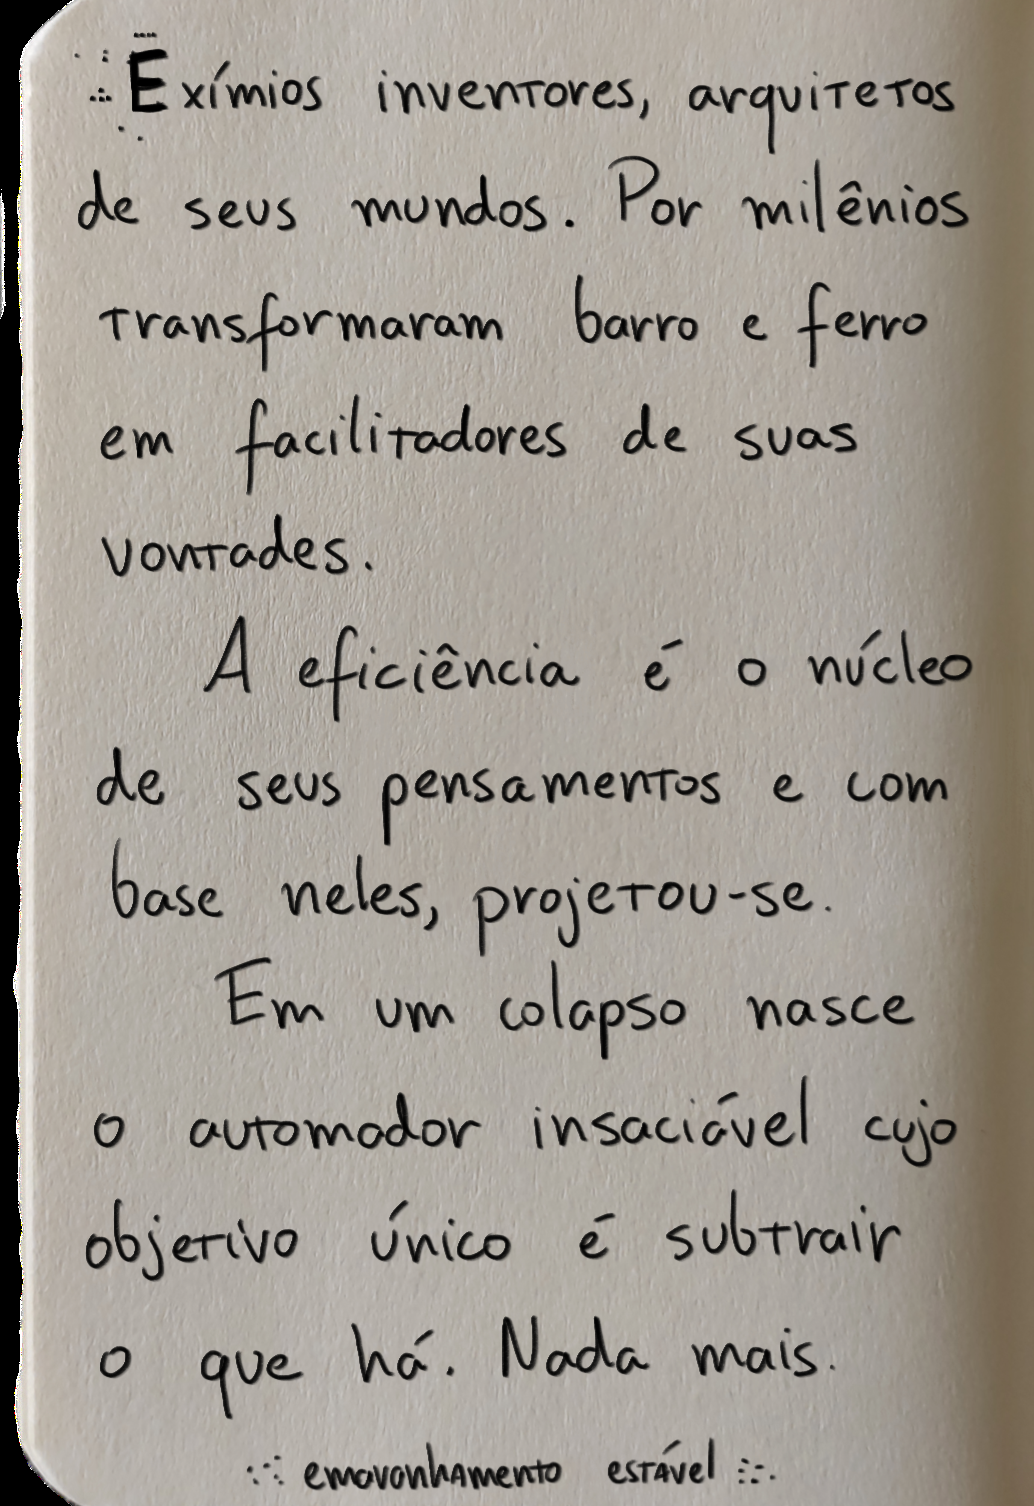 Exímios inventores, arquitetos
de seus mundos. Por milênios
transformaram barro e ferro
em facilitadores de suas
vontades.
A eficiência é o núcleo
de seus pensamentos e com
base neles, projetou-se.
Em um colapso nasce
o automador insaciável cujo
objetivo único é subtrair
o que há. Nada mais.
emavonhamento estável